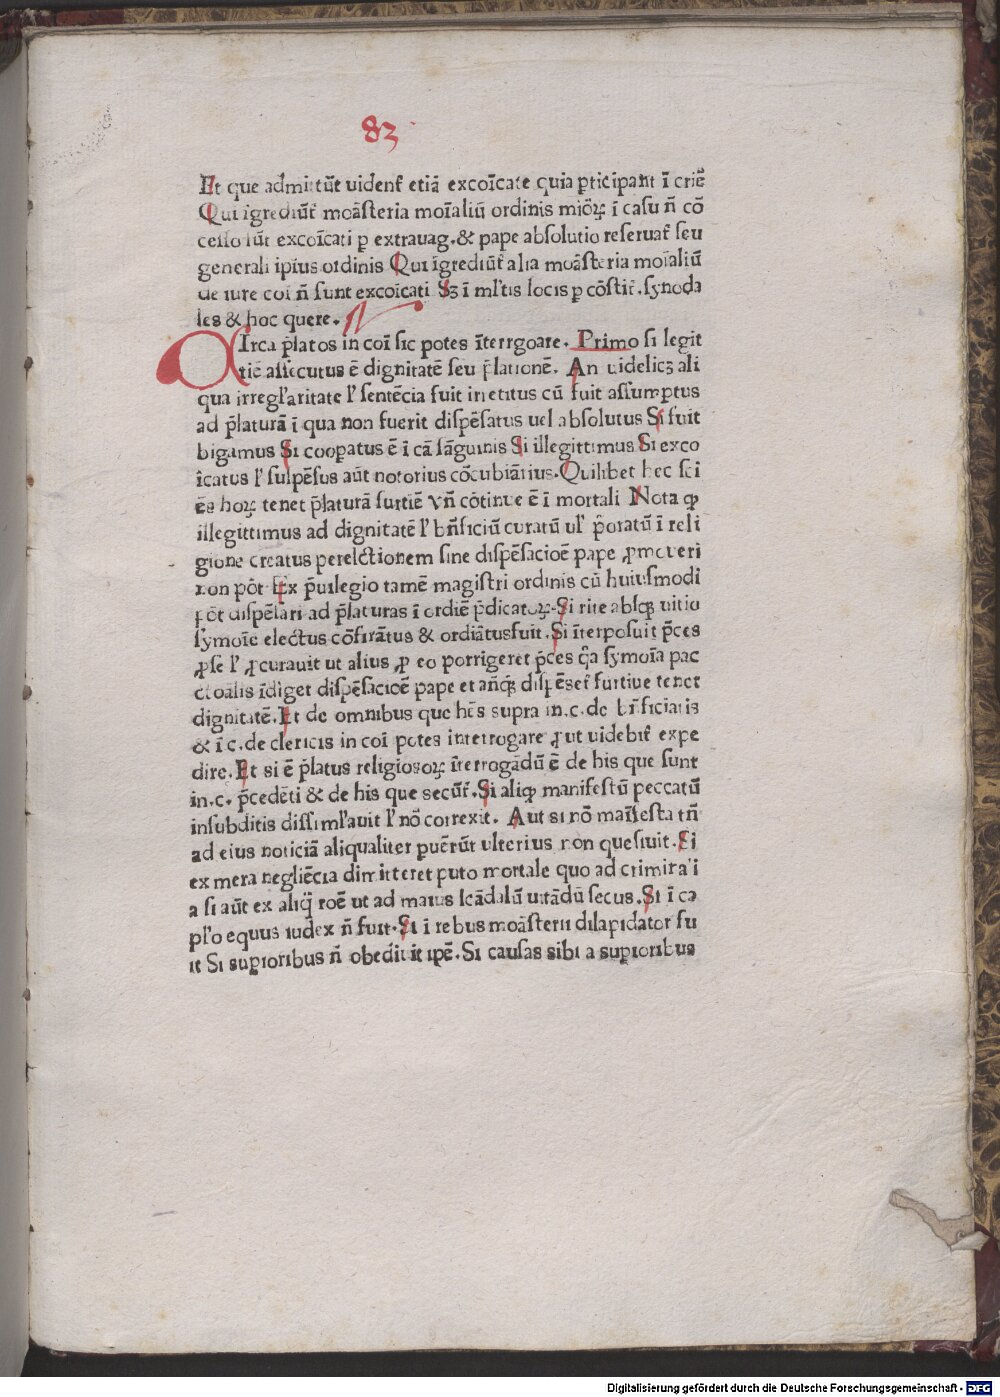 83
Et que admittũt uidenť etiã excoĩcate quia ꝑticipant ĩ criẽ
Qui igrediũť moãsteria moĩaliũ ordinis mioꝝ̃ ĩ casu ñ cõ
cesso sũt excoĩcati ꝑ extrauag. & pape absolutio reseruať seu
generali ipĩus ordinis Qui ĩgrediũť alia moãsteria moĩaliũ
de iure coĩ ñ sunt excoĩcati Sꝫ ĩ ml'tis locis ꝑ cõstiť. synoda
les & hoc quere.
CIrca p̃latos in coĩ sic potes ĩterrgoare. Primo si legit
tiẽ assecutus ẽ dignitatẽ seu p̃lationẽ. An uidelicꝫ ali
qua irregl'aritate l' sentẽcia fuit irretitus cũ fuit assumptus
ad p̃laturã ĩ qua non fuerit dispẽsatus uel absolutus Si fuit
bigamus Si cooꝑatus ẽ ĩ cã sãguinis Si illegittimus Si exco
ĩcatus l' suspẽsus aũt notorius cõcubiãrius. Quilibet hec sci
ẽs hoꝝ tenet p̃laturã furtiẽ vñ cõtinue ẽ ĩ mortali Nota ꝙ
illegittimus ad dignitatẽ l' bñficiũ curatũ ul' p̃oratũ ĩ reli
gione creatus perelctionem sine dispẽsacioẽ pape ꝓmoueri
non põt Ex p̃uilegio tamẽ magistri ordinis cũ huiusmodi
põt dispẽsari ad p̃laturas ĩ ordiẽ p̃dicatoꝝ. Si rite absqꝫ uitio
symoĩe electus cõfirãtus & ordiãtusfuit. Si ĩterposuit p̃ces
ꝓ se l' ꝓcurauit ut alius ꝓ eo porrigeret p̃ces q̃a symoĩa pac
ctoalis ĩdiget dispẽsacioẽ pape et añqꝫ dispẽseť furtiue tenet
dignitatẽ. Et de omnibus que hẽs supra in.c. de bñficiatis
& ĩ c. de clericis in coĩ potes interrogare ꝓut uidebiť expe
dire. Et si ẽ p̃latus religiosoꝝ ĩterrogãdũ ẽ de his que sunt
in.c. p̃cedẽti & de his que secũť. Si aliꝙ manifestũ peccatũ
insubditis dissiml'auit l' nõ correxit. Aut si nõ maĩfesta tñ
ad eius noticiã aliqualiter ꝑuẽrũt ulterius non quesiuit. Si
ex mera negliẽcia dimitteret puto mortale quo ad crimira'i
a si aũt ex aliq̃ roẽ ut ad maius scãdalũ uitãdũ secus. Si ĩ ca
pl'o equus iudex ñ fuit. Si ĩ rebus moãsterii dilapidator fu
it Si suꝑioribus ñ obediuit ipẽ. Si causas sibi a suꝑioribus
Digitalisierung gefördert durch die Deutsche Forschungsgemeinschaft - DFG